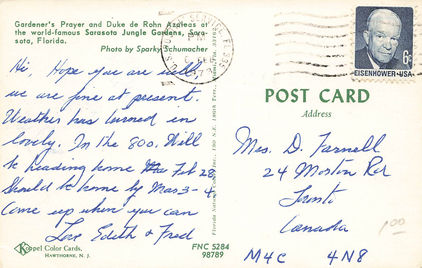 Gardener's Prayer and Duke de Rohn Azaleas at
the world-famous Sarasota Jungle Gardens, Sara-
sota, Florida.
Photo by Sparky Schumacher
Hi Hope you are well
we are fine at present.
Weather has turned in
lovely. In the 80s. Will
be heading home Feb 28
should be home by Mar 3-4
Come up when you can
Love Edith & Fred
Koppel Color Cards,
HAWTHORNE, N. J.
FNC 5284
98789
6¢
EISENHOWER·USA
POST CARD
Address
Mrs. D. Farnell
24 Morton Rd
Toronto
Canada
M4C 4N8
1.00